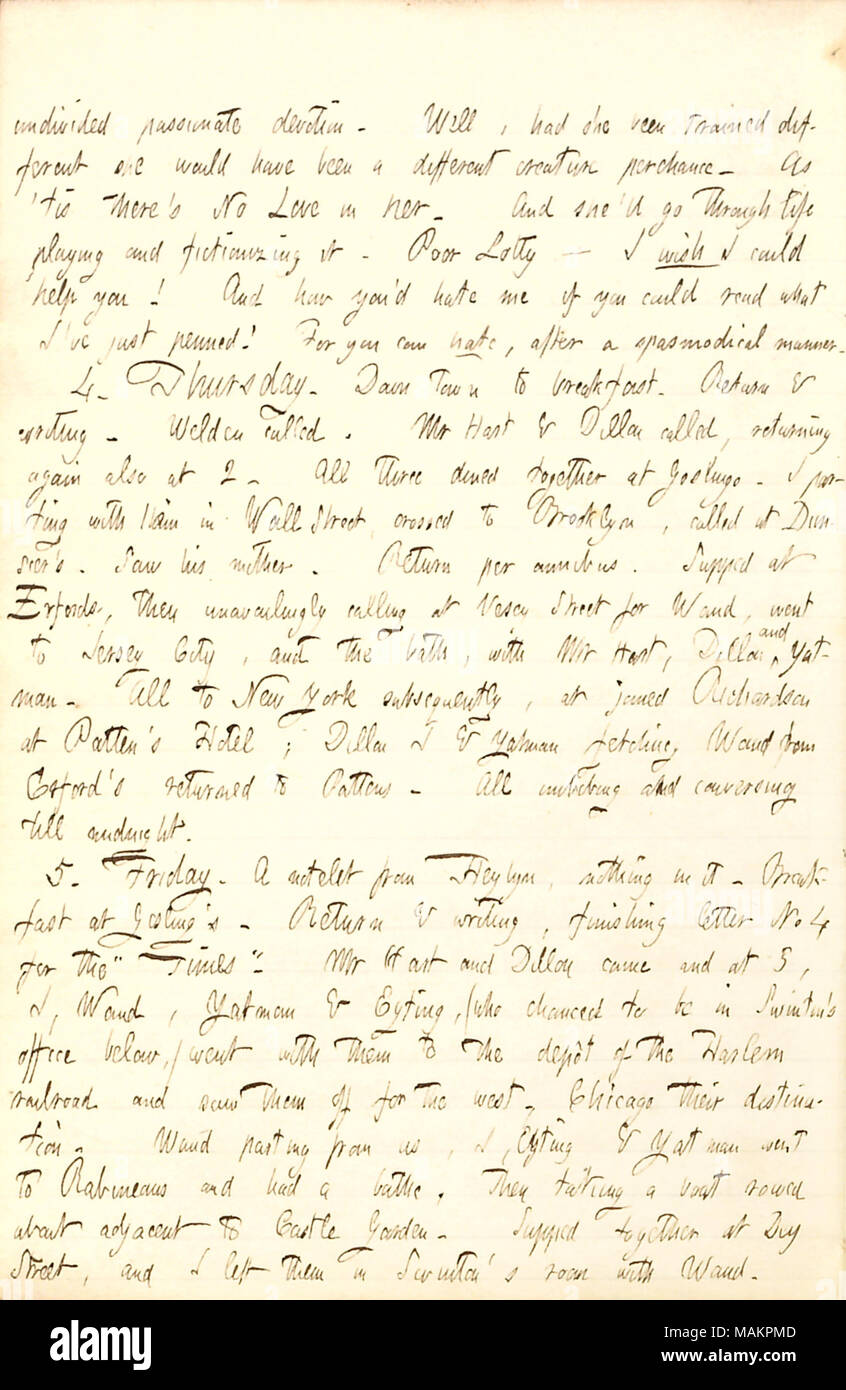 undivided passionate devotion. Well, had she been trained dif-
ferent she would have been a different creature perchance. As
'tis there's No Love in her. And she'd go through life
playing and fictionizing it. Poor Lotty — I wish I could
help you! And how you'd hate me if you could read what
I've just penned! For you can hate, after a spasmodical manner.
4. Thursday. Down town to breakfast. Return &
writing. Welden called. Mr Hart & Dillon called, returning
again also at 2. All three dined together at Goslings. I par-
ting with in Wall Street, crossed to Brooklyn, called at Dun-
sier's. Saw his mother. Return per omnibus. Supped at
Erfords, then unavailingly calling at Vesey Street for Waud, went
to Jersey City, and the bath, with Mr Hart, Dillon, and Yat-
man. All to New York subsequently, at joined Richardson
at Patten's Hotel; Dillon I & Yatman fetching Waud from
Erford's returned to Pattens. All imbibing and conversing
till midnight.
5. Friday. A notelet from Heylyn, nothing in it. Break-
fast at Gosling's. Return & writing, finishing letter No 4
for the "Times". Mr Hart and Dillon came and at 5,
I, Waud, Yatman & Eyting, (who chanced to be in Swinton's
office below,) went with them to the depôt of the Harlem
railroad and saw them off for the west, Chicago their destina-
tion. Waud parting from us, I, Eyting & Yatman went
to Rabineaus and had a bathe. Then taking a boat rowed
about adjacent to Castle Garden. Supped together at Dey
Street, and I left them in Swinton's room with Waud.
alamy
Image ID: MAKPMD
www.alamy.com